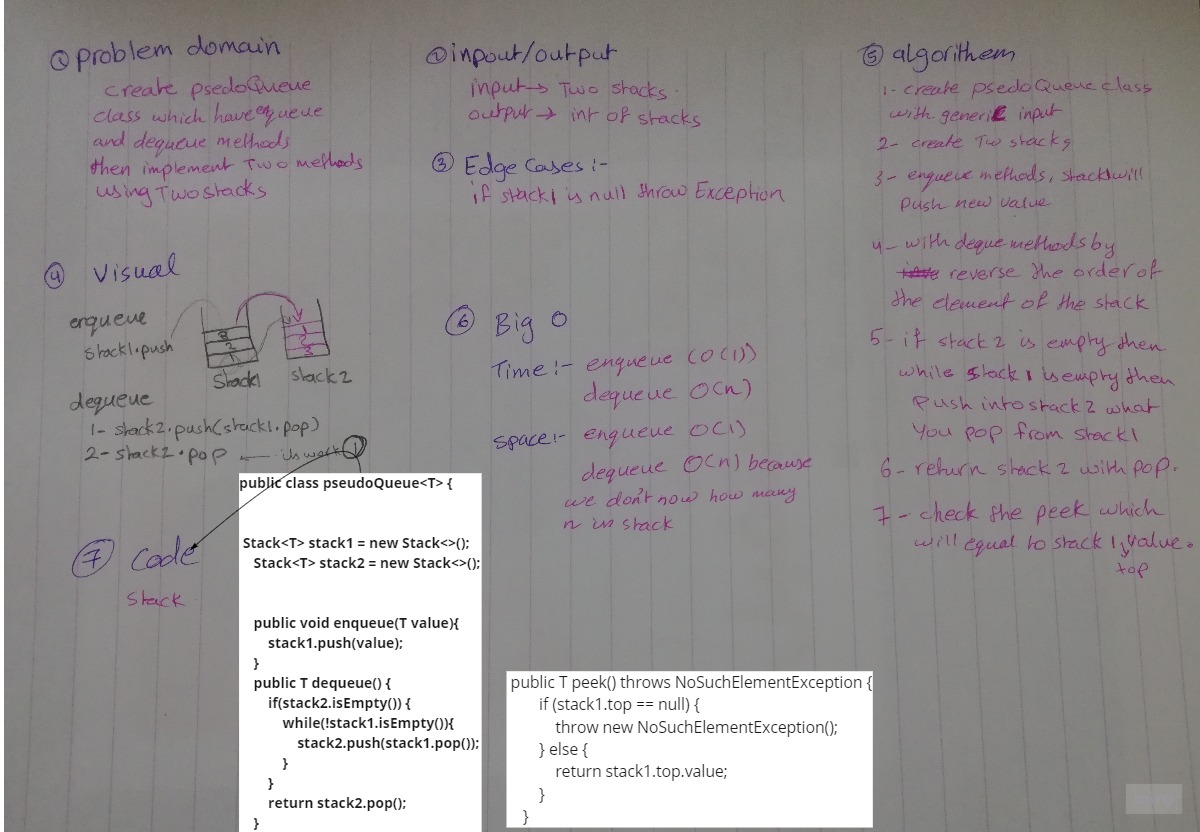 ① problem domain
create psedoQueue
class which have enqueue
and dequeue methods
then implement Two methods
using Two stacks
② inpout/output
input → Two stacks.
output → int of stacks
③ Edge Cases :-
if stack1 is null throw Exception
④ Visual
enqueue
stack1.push
3
2
1
stack1
1
2
3
stack2
dequeue
1- stack2.push(stack1.pop)
2- stack2.pop ←
1
⑤ algorithem
1- create psedoQueue class
with generic input
2- create Two stacks
3- enqueue methods, stack1 will
push new value
4- with deque methods by
reverse the order of
the element of the stack
5- if stack 2 is empty then
while stack 1 is empty then
push into stack 2 what
You pop from stack1
6- return stack 2 with pop.
7- check the peek which
will equal to stack 1, value.
top
⑥ Big O
Time :- enqueue (O(1))
dequeue O(n)
space :- enqueue O(1)
dequeue O(n) because
we don't now how many
n in stack
⑦ Code
Stack
public class pseudoQueue<T> {
Stack<T> stack1 = new Stack<>();
Stack<T> stack2 = new Stack<>();
public void enqueue(T value){
stack1.push(value);
}
public T dequeue() {
if(stack2.isEmpty()) {
while(!stack1.isEmpty()){
stack2.push(stack1.pop());
}
}
return stack2.pop();
}
public T peek() throws NoSuchElementException {
if (stack1.top == null) {
throw new NoSuchElementException();
} else {
return stack1.top.value;
}
}